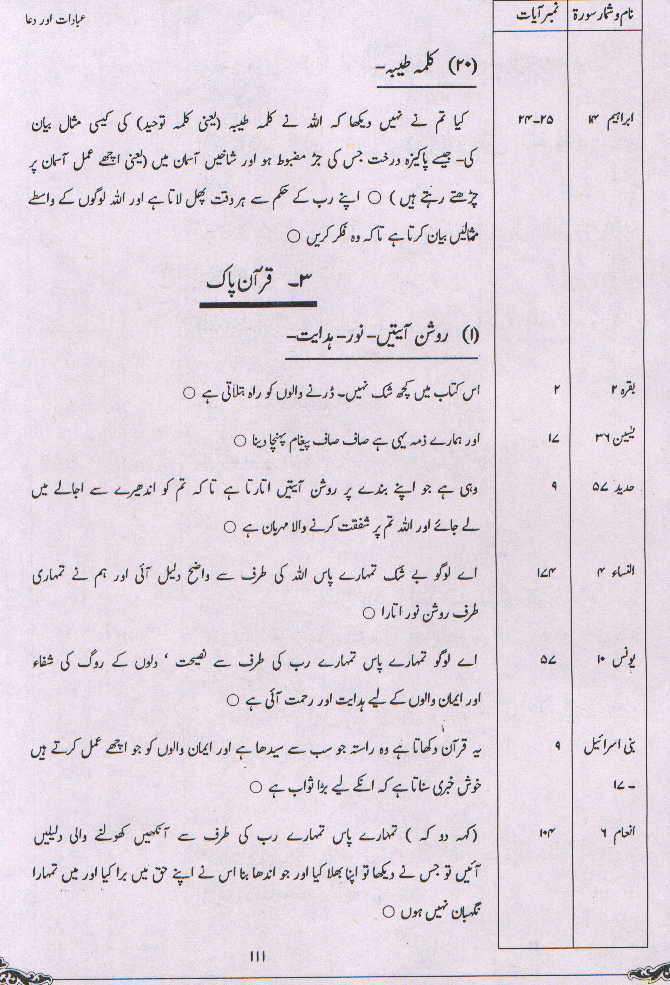 نام و شمار سورۃ نمبر آیات عبادات اور دعا
(۲۰) کلمہ طیبہ -
ابراہیم ۱۴ ۲۴-۲۵ کیا تم نے نہیں دیکھا کہ اللہ نے کلمہ طیبہ (یعنی کلمہ توحید) کی کیسی مثال بیان
کی- جیسے پاکیزہ درخت جس کی جڑ مضبوط ہو اور شاخیں آسمان میں (یعنی اچھے عمل آسمان پر
چڑھتے رہتے ہیں) ○ اپنے رب کے حکم سے ہر وقت پھل لاتا ہے اور اللہ لوگوں کے واسطے
مثالیں بیان کرتا ہے تا کہ وہ فکر کریں ○
۳- قرآن پاک
(۱) روشن آیتیں - نور - ہدایت -
بقرہ ۲ ۲ اس کتاب میں کچھ شک نہیں- ڈرنے والوں کو راہ بتلاتی ہے ○
یٰسین ۳۶ ۱۷ اور ہمارے ذمہ یہی ہے صاف صاف پیغام پہنچا دینا ○
حدید ۵۷ ۹ وہی ہے جو اپنے بندے پر روشن آیتیں اتارتا ہے تا کہ تم کو اندھیرے سے اجالے میں
لے جائے اور اللہ تم پر شفقت کرنے والا مہربان ہے ○
النساء ۴ ۱۷۴ اے لوگو بے شک تمہارے پاس اللہ کی طرف سے واضح دلیل آئی اور ہم نے تمہاری
طرف روشن نور اتارا ○
یونس ۱۰ ۵۷ اے لوگو تمہارے پاس تمہارے رب کی طرف سے نصیحت ‘ دلوں کے روگ کی شفاء
اور ایمان والوں کے لیے ہدایت اور رحمت آئی ہے ○
بنی اسرائیل ۹ یہ قرآن دکھاتا ہے وہ راستہ جو سب سے سیدھا ہے اور ایمان والوں کو جو اچھے عمل کرتے ہیں
-۱۷ خوش خبری سناتا ہے کہ انکے لیے بڑا ثواب ہے ○
انعام ۶ ۱۰۴ (کہہ دو کہ) تمہارے پاس تمہارے رب کی طرف سے آنکھیں کھولنے والی دلیلیں
آئیں تو جس نے دیکھا تو اپنا بھلا کیا اور جو اندھا بنا اس نے اپنے حق میں برا کیا اور میں تمہارا
نگہبان نہیں ہوں ○
۱۱۱